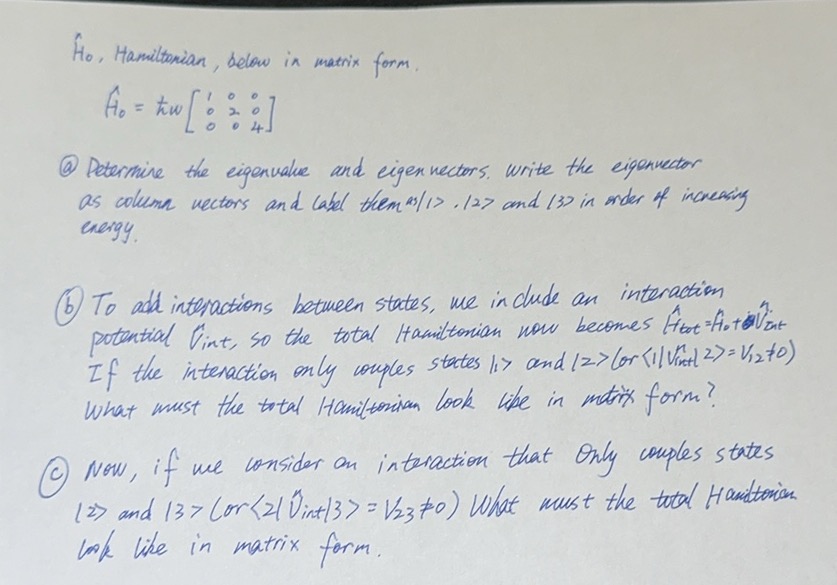 Ĥo, Hamiltonian, below in matrix form.
Ĥo = ħw [ 1 0 0
0 2 0
0 0 4 ]
ⓐ Determine the eigenvalue and eigenvectors. Write the eigenvector
as column vectors and label them as |1> , |2> and |3> in order of increasing
energy.
ⓑ To add interactions between states, we include an interaction
potential V̂int, so the total Hamiltonian now becomes Ĥtot = Ĥo + V̂int
If the interaction only couples states |1> and |2> (or <1|V̂int|2> = V12 ≠ 0)
What must the total Hamiltonian look like in matrix form?
ⓒ Now, if we consider an interaction that Only couples states
|2> and |3> (or <2|V̂int|3> = V23 ≠ 0) What must the total Hamiltonian
look like in matrix form.